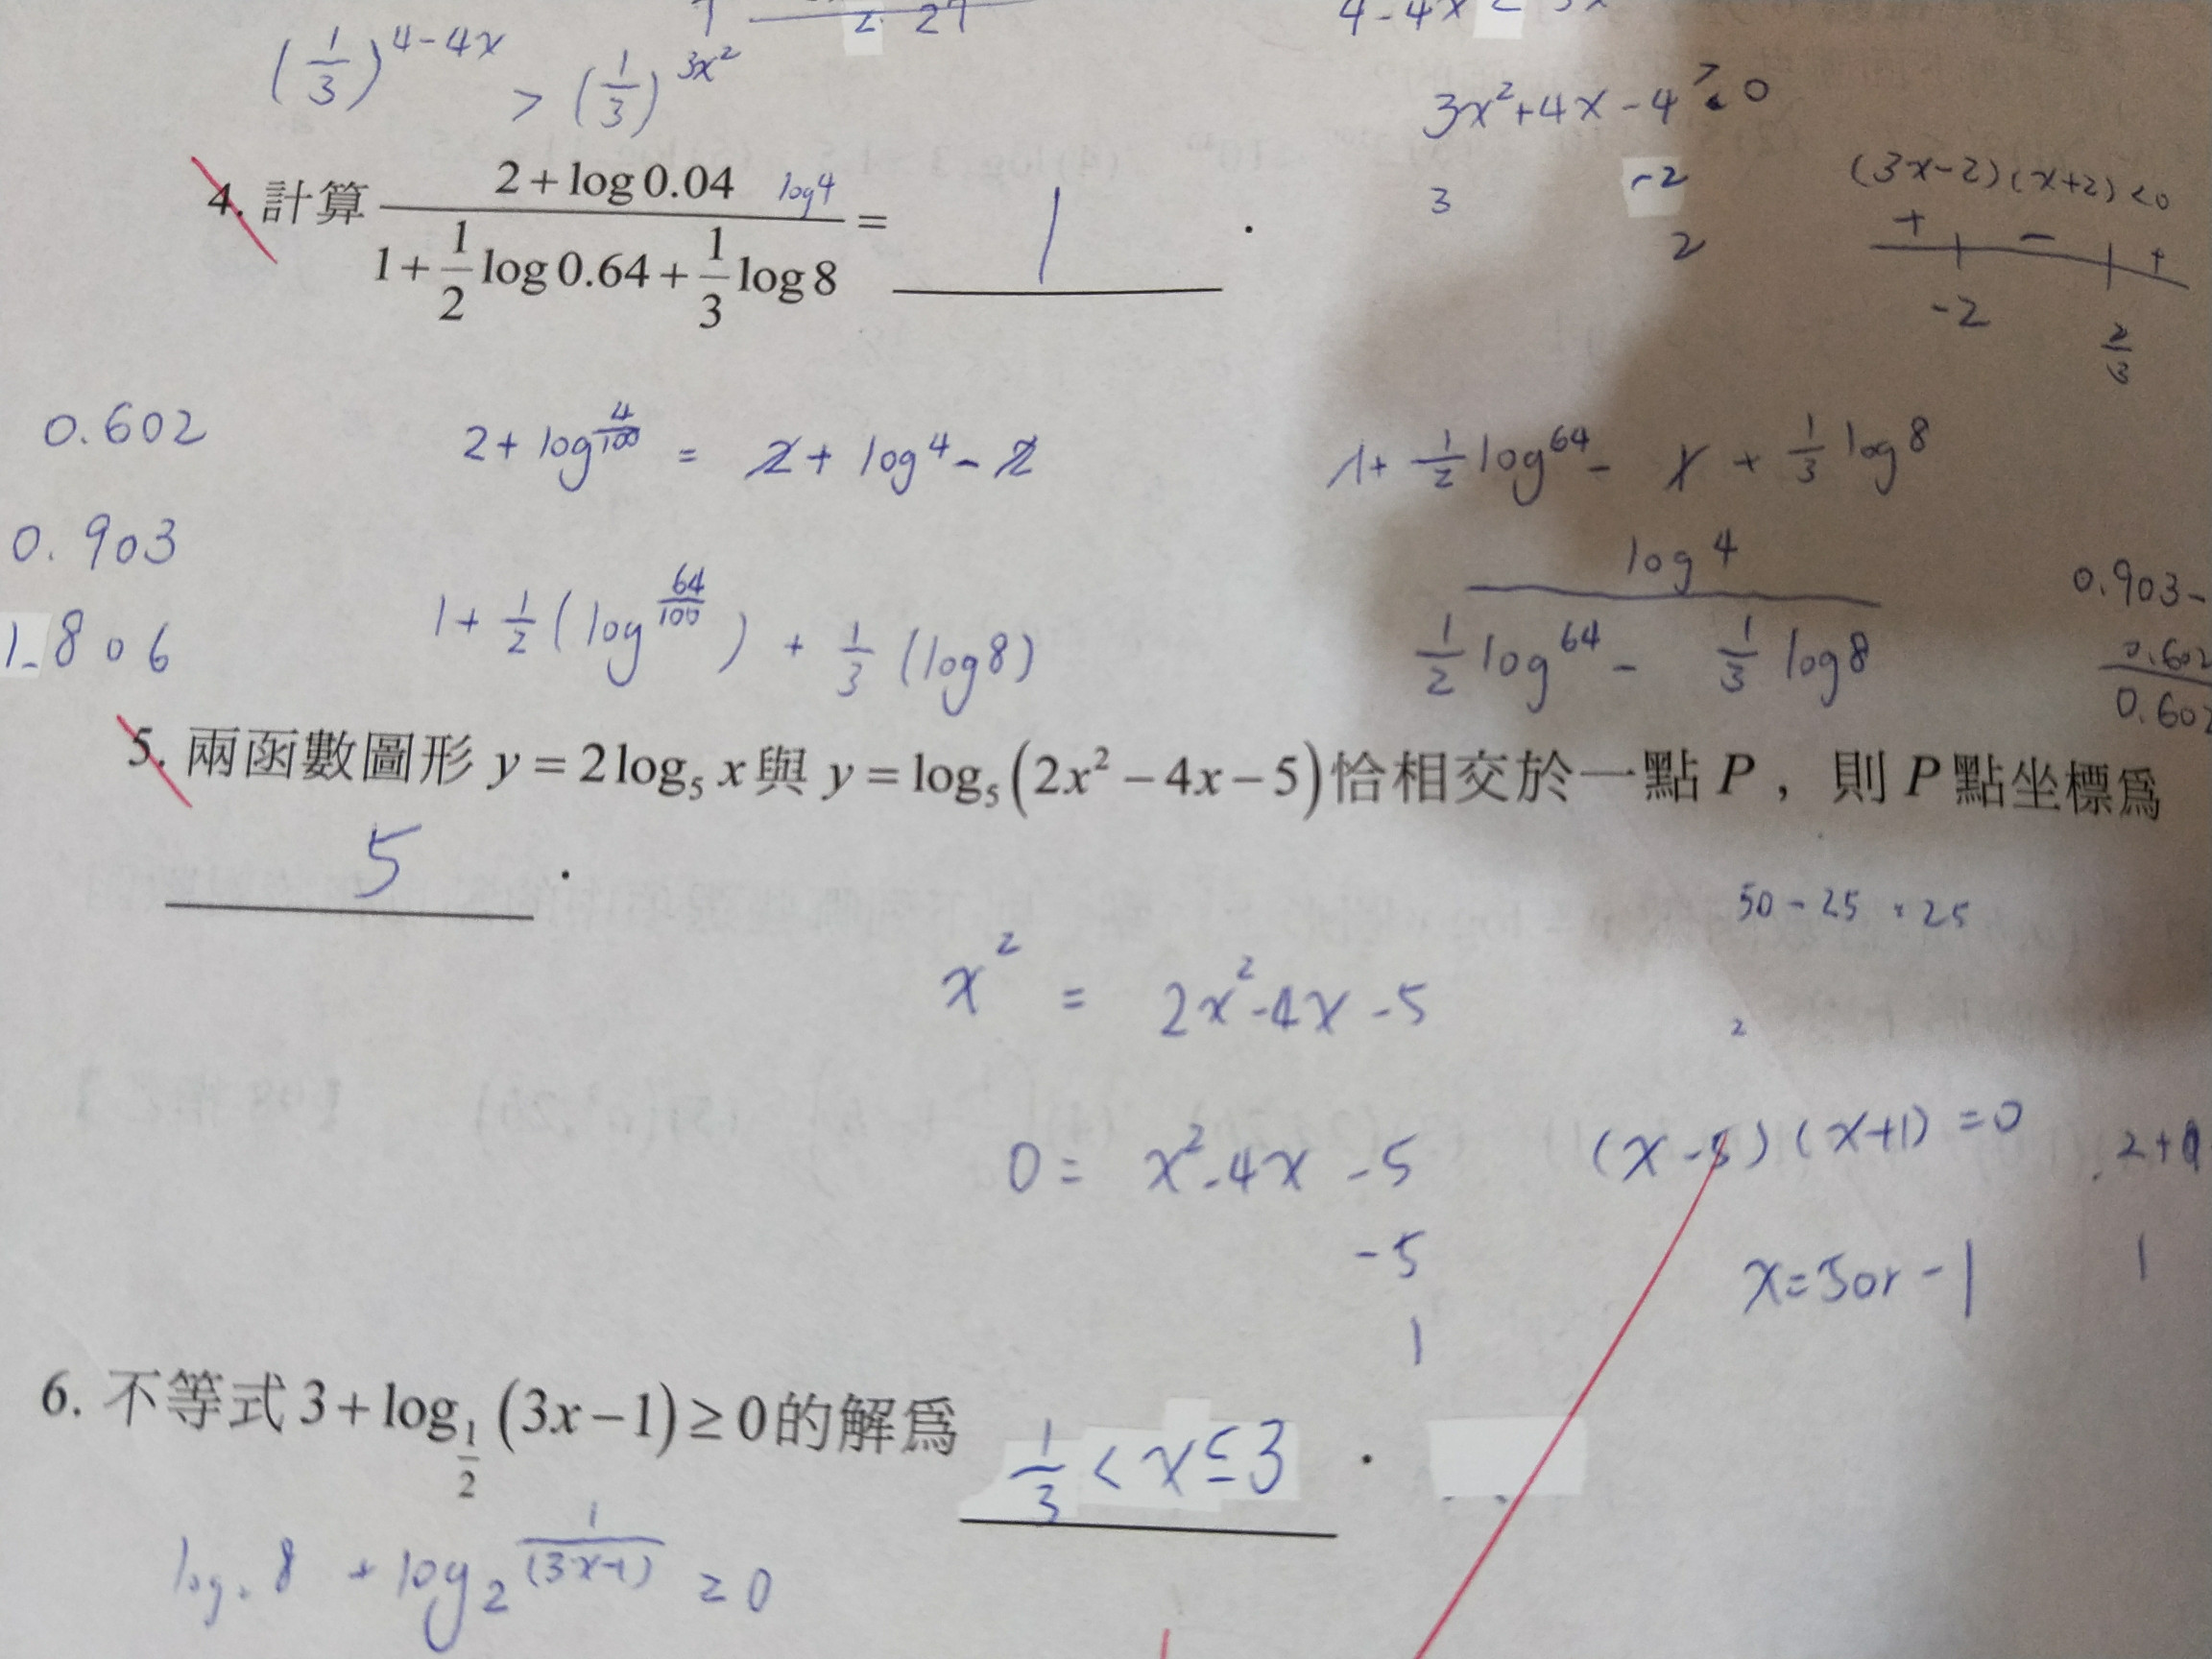 (1/3)^{4-4x} > (1/3)^{3x²}
3x²+4x-4 > 0
3 -2
2
(3x-2)(x+2)<0
+ - +
-2 2/3
4. 計算 (2+log0.04)/(1+1/2 log0.64+1/3 log8) = 1 .
log4
0.602
0.903
1.806
2+log 4/100 = 2+log4-2
1+1/2(log 64/100)+1/3(log8)
1+1/2 log64 - 1 + 1/3 log8
log4
1/2 log64 - 1/3 log8
0.903-
0.602
0.602
5. 兩函數圖形 y=2log₅x與 y=log₅(2x²-4x-5)恰相交於一點 P，則 P 點坐標為
5 .
50-25=25
x² = 2x²-4x-5
2
0 = x²-4x-5
-5
1
(x-5)(x+1)=0
x=5or-1
1
6. 不等式 3+log_{1/2}(3x-1)≥0的解為 1/3 < x ≤ 3 .
8 + log₂ 1/(3x-1) ≥ 0